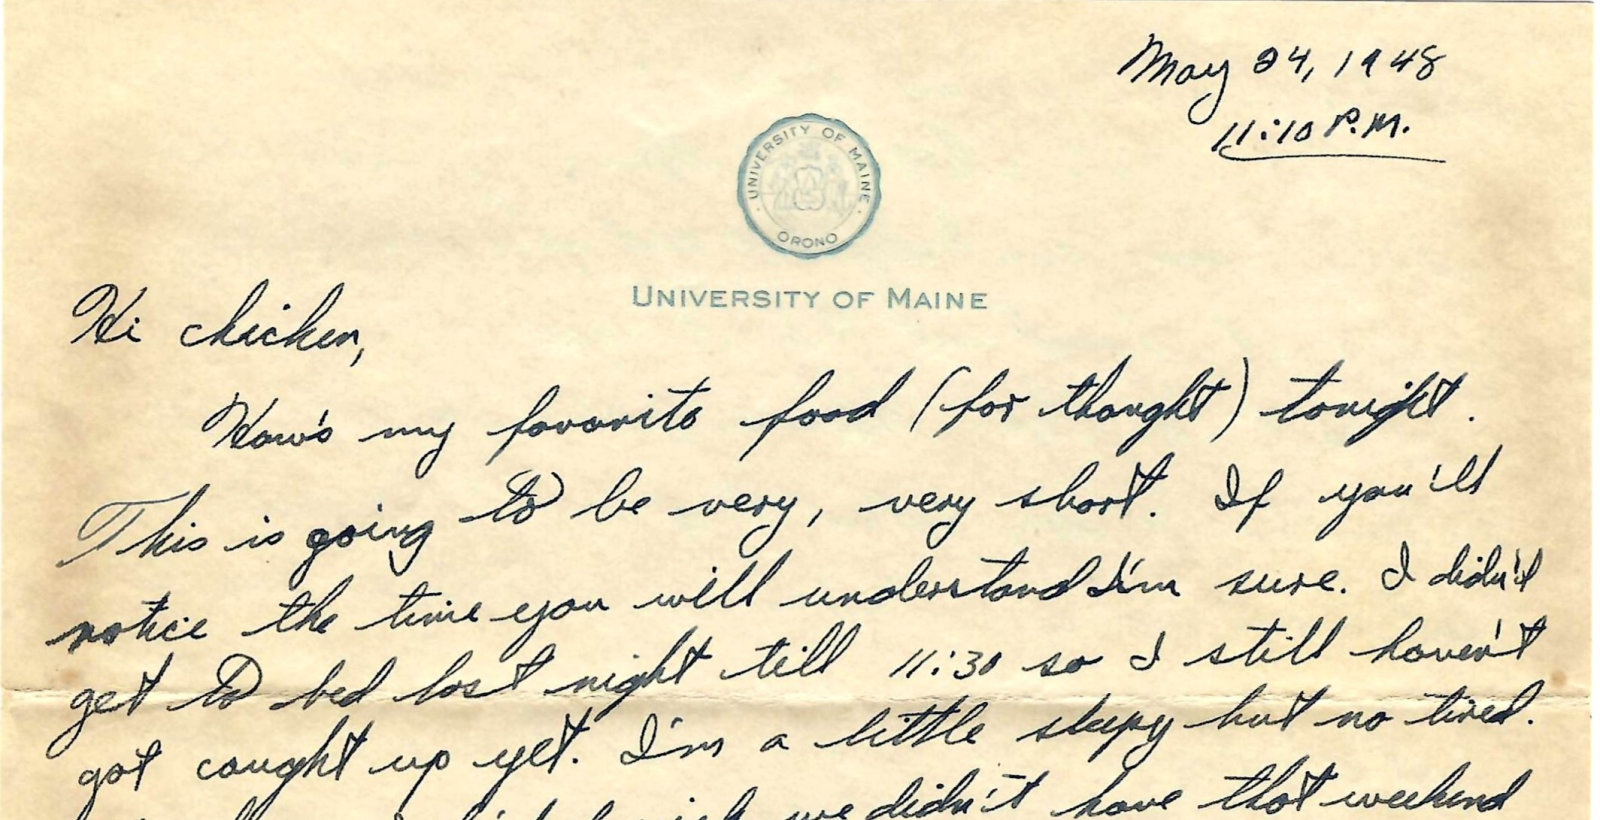 May 24, 1948
11:10 P.M.
· UNIVERSITY OF MAINE · ORONO
UNIVERSITY OF MAINE
Hi chicken,
How's my favorite food (for thought) tonight.
This is going to be very, very short. If you'll
notice the time you will understand I'm sure. I didn't
get to bed last night till 11:30 so I still haven't
got caught up yet. I'm a little sleepy but no tired.
wish we didn't have that weekend